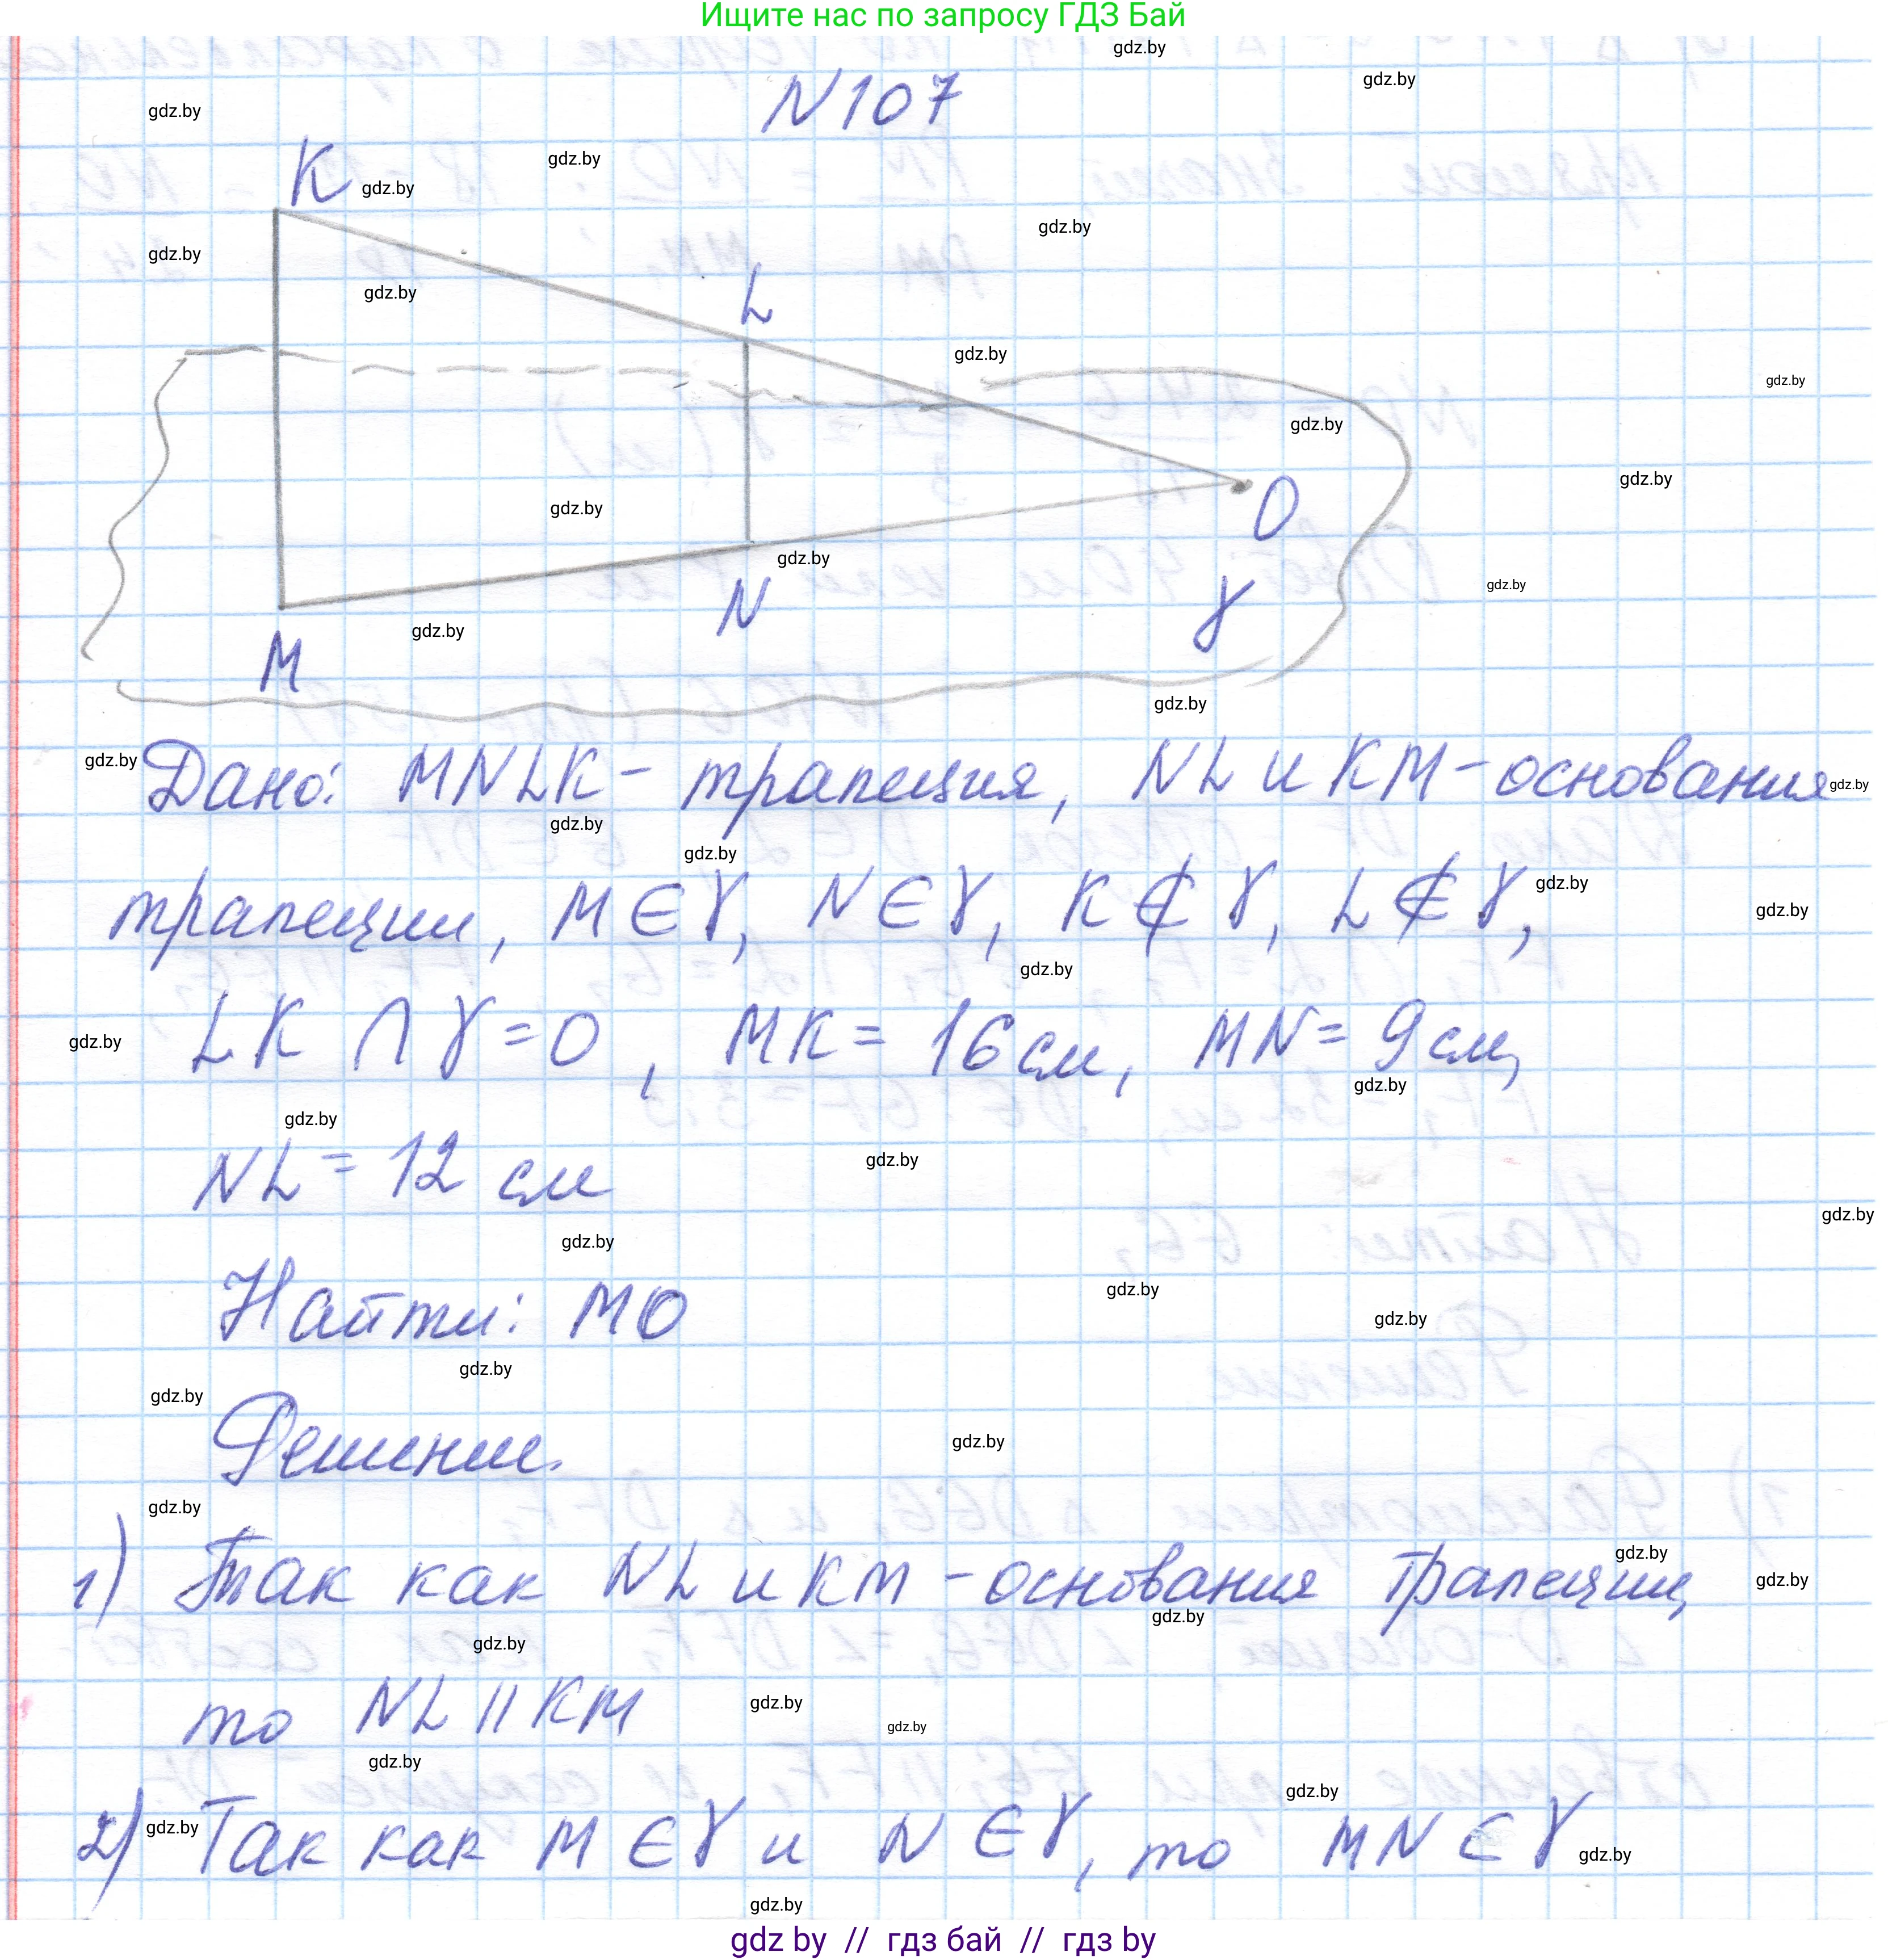 Ищите нас по запросу ГДЗ Бай
N107
K
L
O
N
M
γ
Дано: MNLK - трапеция, NL и KM - основания
трапеции, M ∈ γ, N ∈ γ, K ∉ γ, L ∉ γ,
LK ∩ γ = O, MK = 16 см, MN = 9 см,
NL = 12 см
Найти: MO
Решение.
1) Так как NL и KM - основания трапеции,
то NL || KM
2) Так как M ∈ γ и N ∈ γ, то MN ⊂ γ
gdz by // гдз бай // гдз by